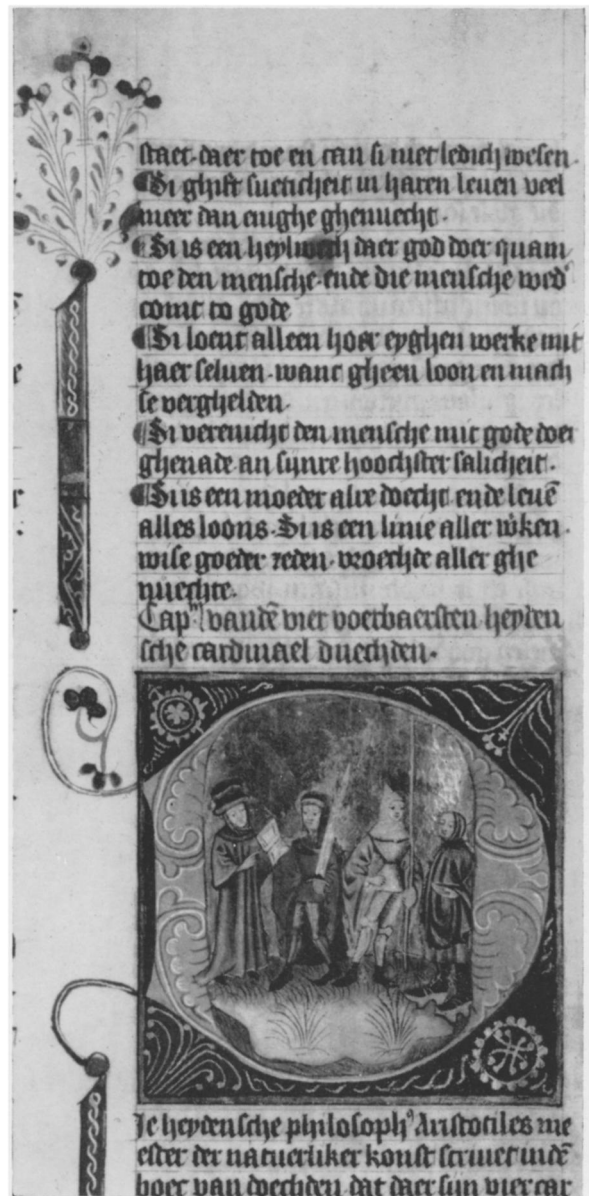 staet. daer toe en can si niet ledich wesen.
Si ghift sueticheit in haren leuen veel
meer dan enighe ghenuecht.
Si is een heylwech daer god doer quam
toe den mensche. ende die mensche wed'
comt to gode
Si loent alleen hoer eyghen werke mit
haer seluen. want gheen loon en mach
se verghelden.
Si verenicht den mensche mit gode doer
ghenade an sijnre hoochster salicheit.
Si is een moeder alre doecht ende leuē
alles loons. Si is een linie aller w'ken.
wise goeder zeden. vroechde aller ghe
nuechte.
Cap' vandē vier voerbaersten heyden
sche cardinael duechden.
Je heydensche philosoph' Aristotiles me
ester der natuerliker konst scriuet indē
boec van doechden. dat daer sijn vier car